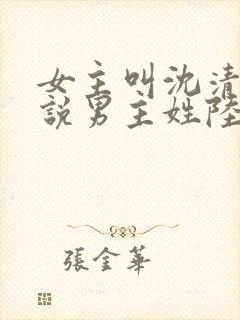 女主叫沈清
說男主姓陸
張金華